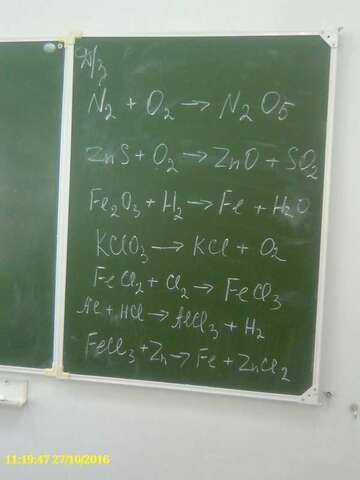 Д/з
N₂ + O₂ → N₂O₅
ZnS + O₂ → ZnO + SO₂
Fe₂O₃ + H₂ → Fe + H₂O
KClO₃ → KCl + O₂
FeCl₂ + Cl₂ → FeCl₃
Al + HCl → AlCl₃ + H₂
FeCl₃ + Zn → Fe + ZnCl₂
11:19:47 27/10/2016